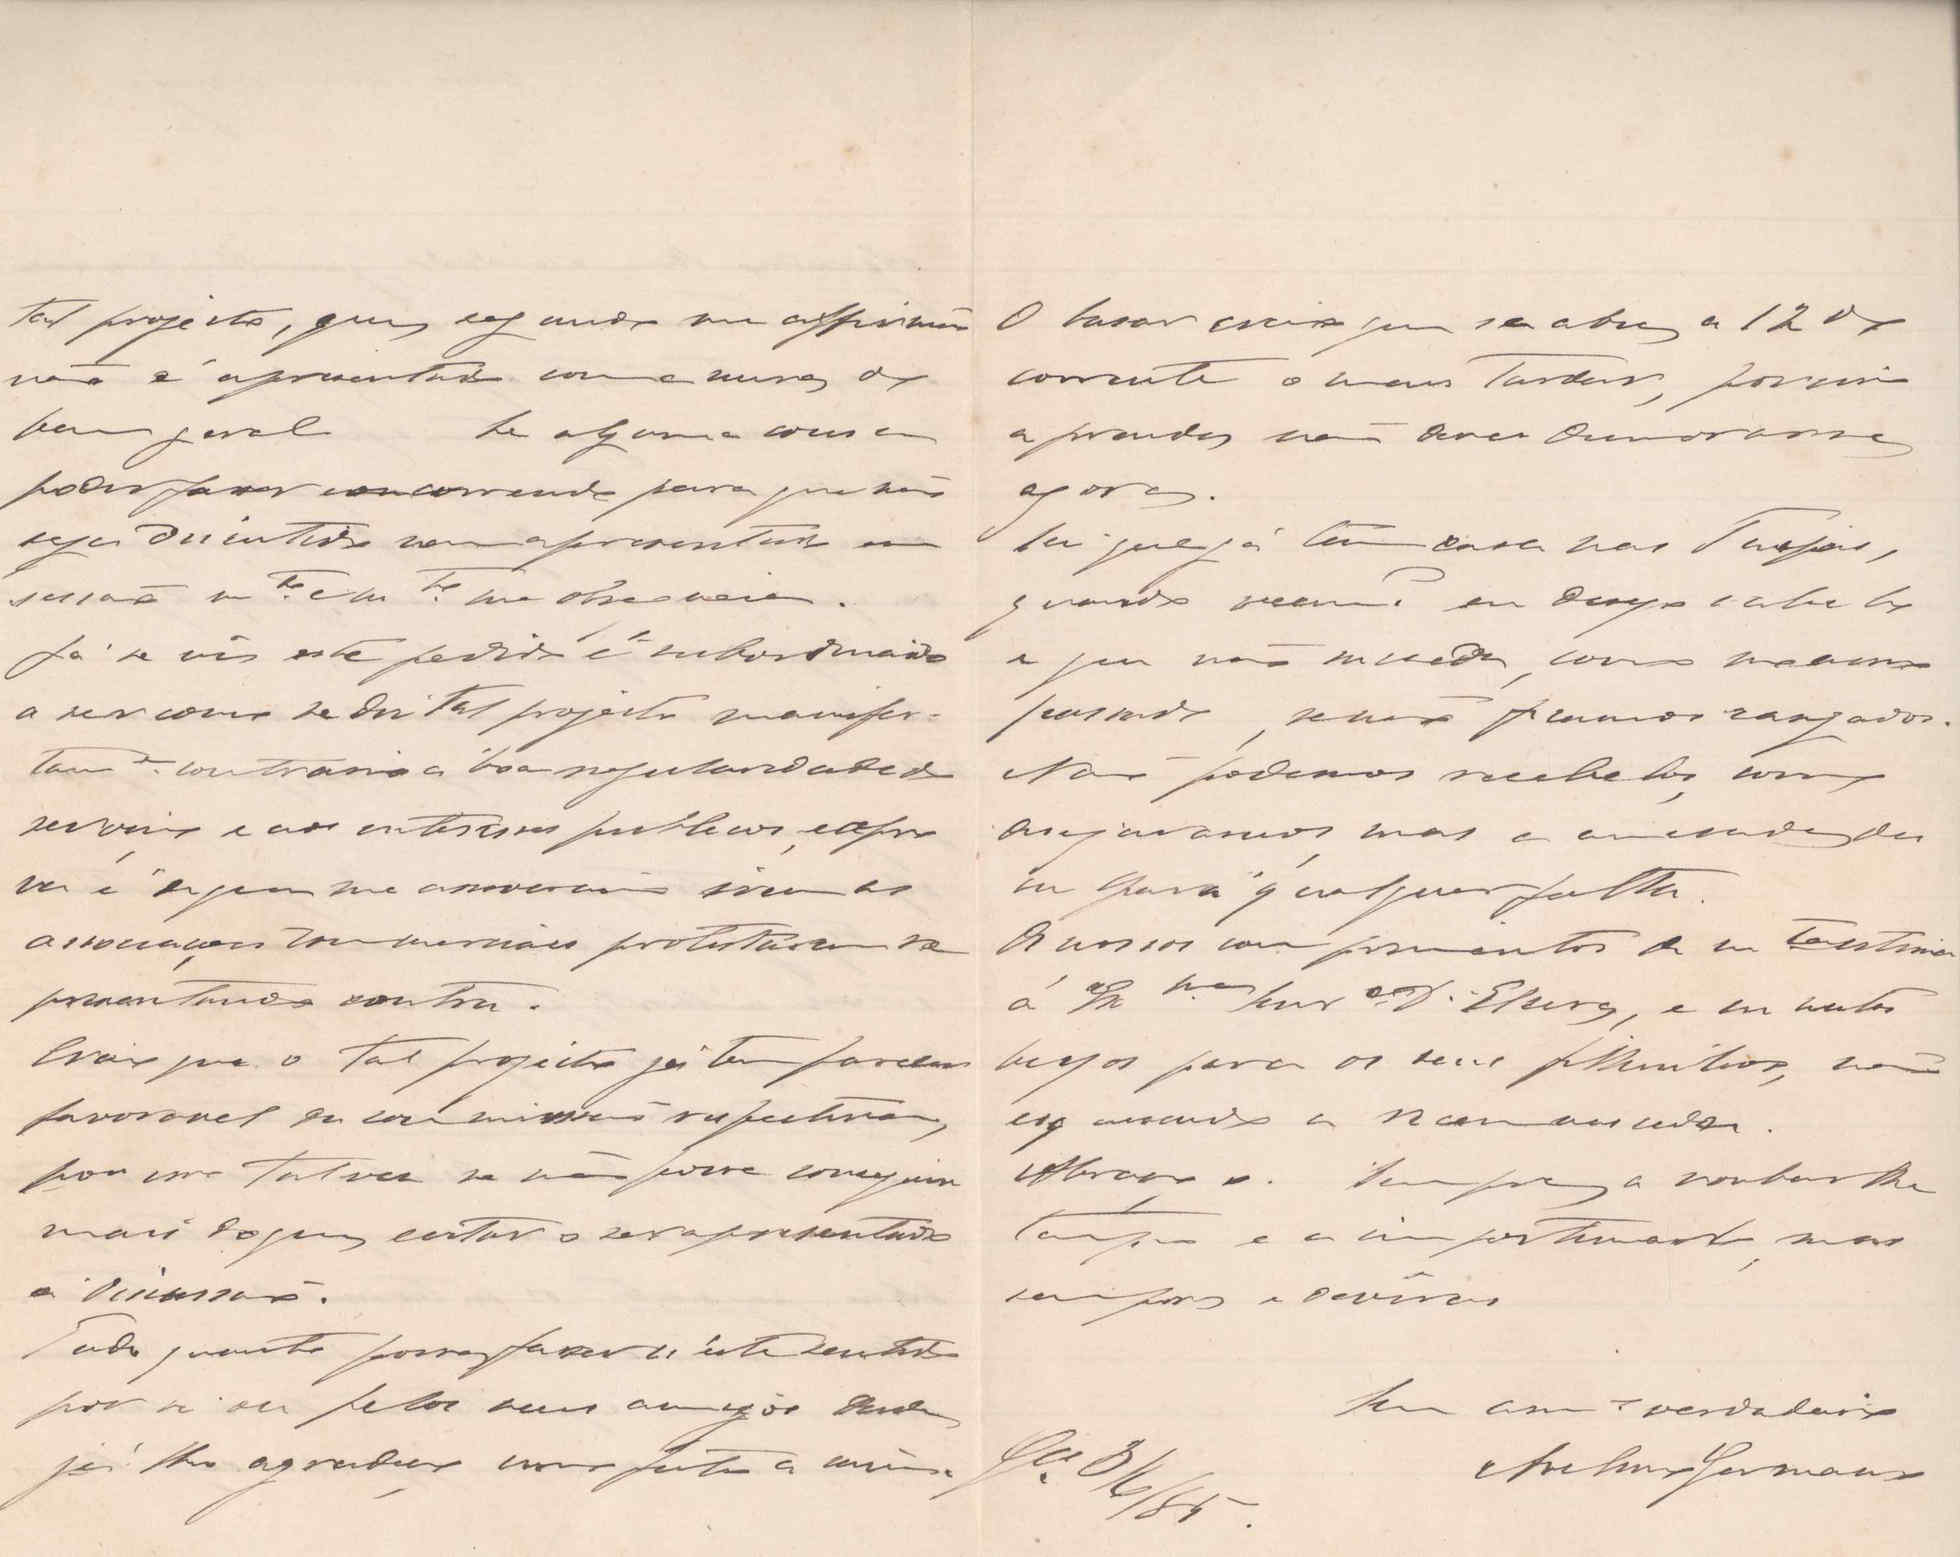 tal projecto, que, segundo me affirmão
não é apresentado como cousa de
bem geral Se alguma cousa
poder fazer concorrendo para que não
seja discutido nem apresentado em
sessão m.to e m.to me obsequeia.
Já se vê este pedido é subordinado
a ser como se diz tal projecto manifes-
tam.e contrario á boa regularidade do
serviço e aos interesses publicos, e a pro
va é o que me asseverarão irem as
associações commerciaes protestarem re
presentando contra.
Creio que o tal projecto já tem parecer
favoravel da commissão respectiva,
por isso talvez se não possa conseguir
mais do que evitar o ser apresentado
á discussão.
Tudo quanto possa fazer n'este sentido
por si ou pelos seus amigos desde
já lho agradeço como feito a mim.
O bazar creio que se abre a 12 do
corrente o mais tardar, porisso
a prenda não deve demorar-se
agora.
Sei que já tem casa nas
quando veem? eu desejo sabel-o
e que não succeda, como no anno
passado, senão ficamos zangados.
Não podemos recebel-os, como
desejavamos, mas a amisade
qualquer falta.
Os nossos comprimentos de m.ta estima
á Ex.ma Snr.a D. Elvira, e m muitos
beijos para os seus filhinhos, não
esquecendo a
Abraça-o. Sempre a roubar-lhe
tempo e a importunal-o, mas
sempre e devéras
Seu am.o verdadeiro
Avelino Germano
G.es 3/6/85.